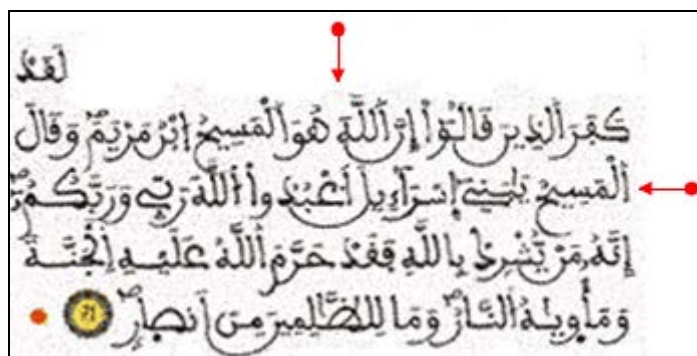 لَقَدْ
كَفَرَ اَلذِينَ قَالُوٓاْ إِنَّ اَللَّهَ هُوَ اَلْمَسِيحُ اُبْنُ مَرْيَمَۖ وَقَالَ
اَلْمَسِيحُ يَٰبَنِےٓ إِسْرَآءِيلَ اَعْبُدُواْ اُللَّهَ رَبِّے وَرَبَّكُمُۥٓۖ
إِنَّهُۥ مَنْ يُّشْرِكْ بِاللَّهِ فَقَدْ حَرَّمَ اَللَّهُ عَلَيْهِ اِلْجَنَّةَ
وَمَأْوِيٰهُ اُلنَّارُۖ وَمَا لِلظَّٰلِمِينَ مِنَ اَنصِارٖۖ